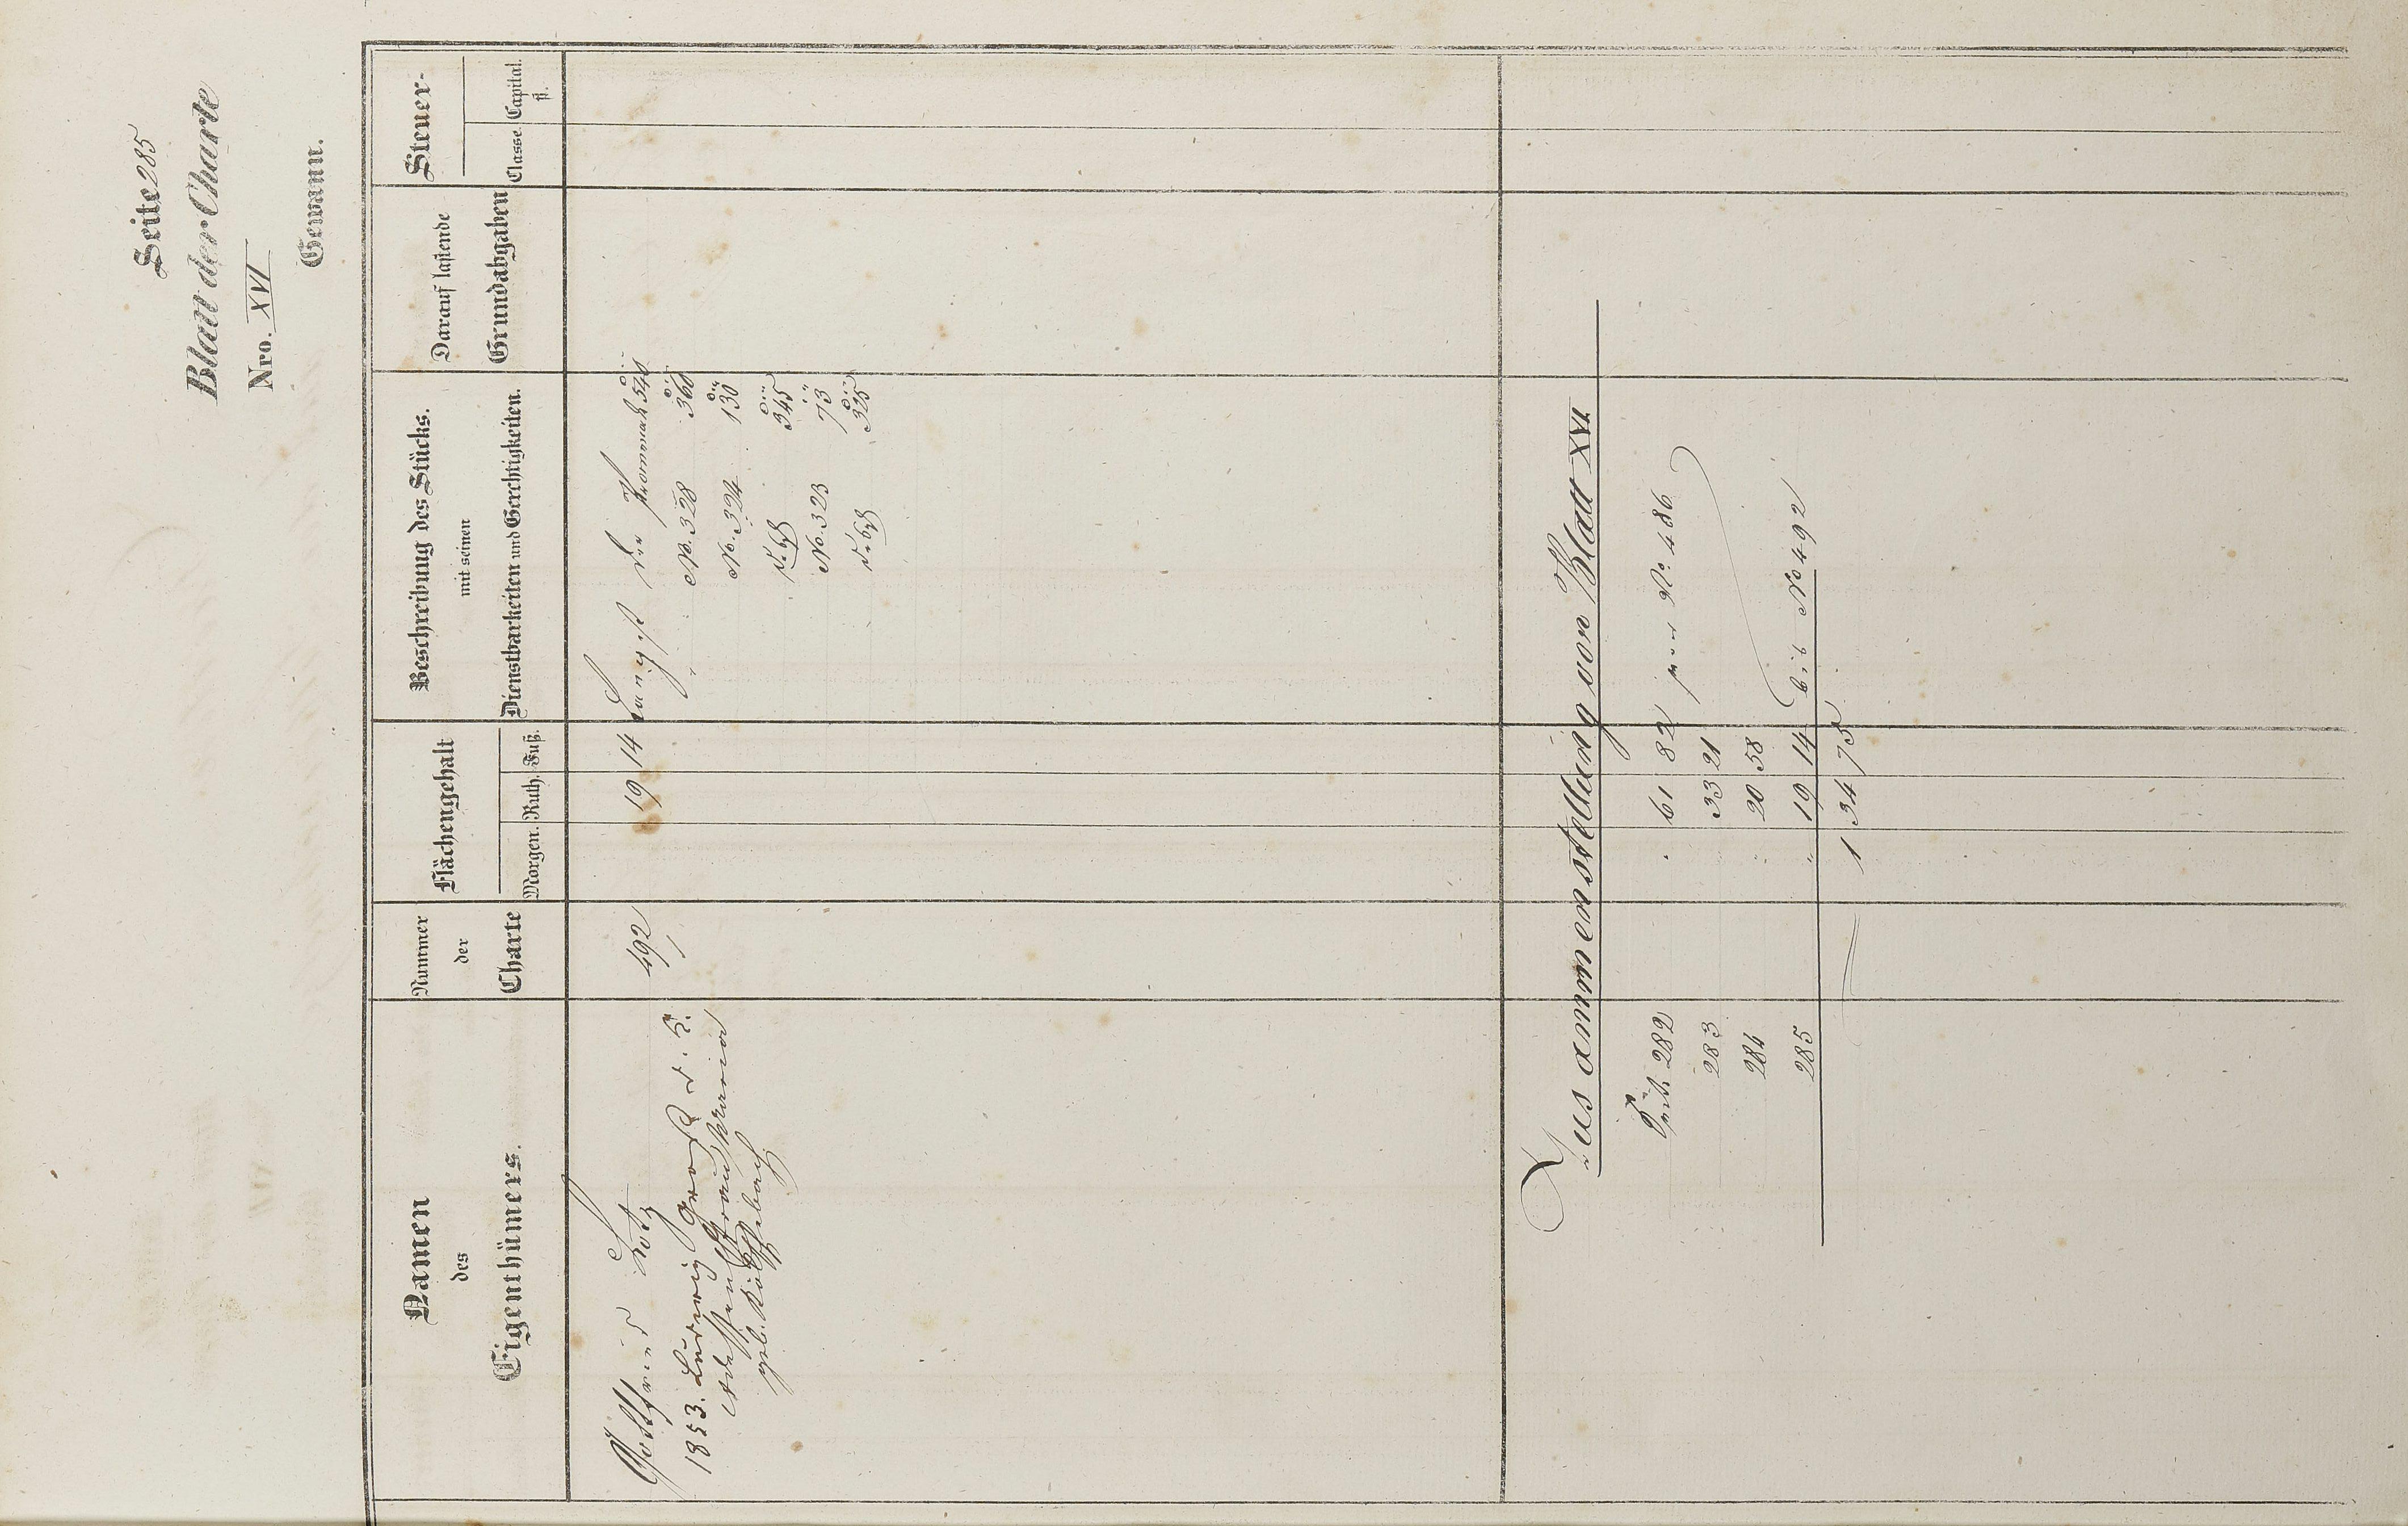 Seite 285
Blatt der Charte
Nro. XVI
Gewann.
Namen des Eigenthümers.
Nummer der Charte
Flächengehalt
Morgen. Ruth. Fuß.
Beschreibung des Stücks.
mit seinen
Dienstbarkeiten und Gerechtigkeiten.
Darauf lastende
Grundabgaben
Steuer-
Classe. Capital.
fl.
Gottfried Lotz 492 19 14 Längst der Promenade 540
1853. Ludwig Groß
No. 328 360
dessen Frau Maria No. 324 130
geb.
345
No. 323 73
325
Zusammenstellung von Blatt XVI
Seit. 282 " 61 82 von No. 486
283 33 21
284 " 20 58
285 " 19 14 bis No 492
1 34 75